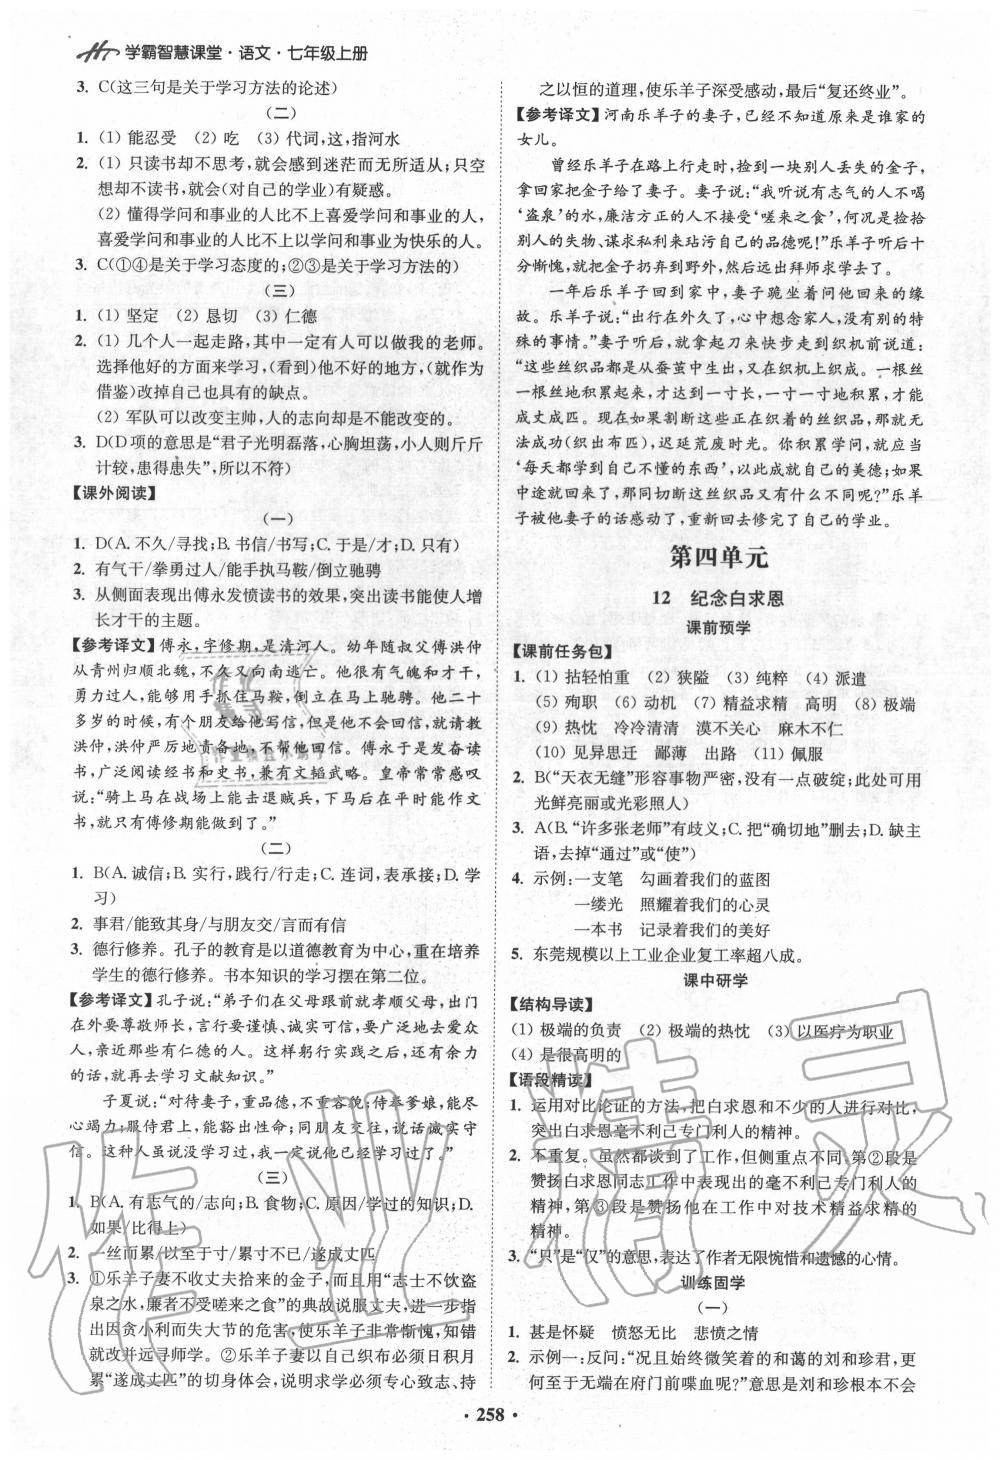 学霸智慧课堂·语文·七年级上册
3. C(这三句是关于学习方法的论述)
(二)
1. (1) 能忍受 (2) 吃 (3) 代词,这,指河水
2. (1) 只读书却不思考,就会感到迷茫而无所适从;只空
想却不读书,就会(对自己的学业)有疑惑。
(2) 懂得学问和事业的人比不上喜爱学问和事业的人,
喜爱学问和事业的人比不上以学问和事业为快乐的人。
3. C(①④是关于学习态度的;②③是关于学习方法的)
(三)
1. (1) 坚定 (2) 恳切 (3) 仁德
2. (1) 几个人一起走路,其中一定有人可以做我的老师。
选择他好的方面来学习,(看到)他不好的地方,(就作为
借鉴)改掉自己也具有的缺点。
(2) 军队可以改变主帅,人的志向却是不能改变的。
3. D(D项的意思是“君子光明磊落,心胸坦荡,小人则斤斤
计较,患得患失”,所以不符)
【课外阅读】
(一)
1. D(A. 不久/寻找;B. 书信/书写;C. 于是/才;D. 只有)
2. 有气干/拳勇过人/能手执马鞍/倒立驰骋
3. 从侧面表现出傅永发愤读书的效果,突出读书能使人增
长才干的主题。
【参考译文】傅永,字修期,是清河人。幼年随叔父傅洪仲
从青州归顺北魏,不久又向南逃亡。他很有气魄和才干,
勇力过人,能够用手抓住马鞍,倒立在马上驰骋。他二十
多岁的时候,有个朋友给他写信,但是他不会回信,就请教
洪仲,洪仲严厉地责备他,不帮他回信。傅永于是发奋读
书,广泛阅读经书和史书,兼有文韬武略。皇帝常常感叹
说:“骑上马在战场上能击退贼兵,下马后在平时能作文
书,就只有傅修期能做到了。”
(二)
1. B(A. 诚信;B. 实践,践行/行走;C. 连词,表承接;D. 学
习)
2. 事君/能致其身/与朋友交/言而有信
3. 德行修养。孔子的教育是以道德教育为中心,重在培养
学生的德行修养。书本知识的学习摆在第二位。
【参考译文】孔子说:“弟子们在父母跟前就孝顺父母,出门
在外要尊敬师长,言行要谨慎,要诚实可信,要广泛地去爱众
人,亲近那些有仁德的人。这样躬行实践之后,还有余力
的话,就再去学习文献知识。”
子夏说:“对待妻子,重品德,不重容貌;侍奉爹娘,能尽
心竭力;服侍君上,能豁出性命;同朋友交往,说话诚实守
信。这种人虽说没学习过,我一定说他已经学习过了。”
(三)
1. B(A. 有志气的/志向;B. 食物;C. 原因/学过的知识;D.
如果/比得上)
2. 一丝而累/以至于寸/累寸不已/遂成丈匹
3. ①乐羊子妻不收丈夫拾来的金子,而且用“志士不饮盗
泉之水,廉者不受嗟来之食”的典故说服丈夫,进一步指
出因贪小利而失大节的危害,使乐羊子非常惭愧,知错
就改并远寻师学。②乐羊子妻以自己织布必须日积月
累“遂成丈匹”的切身体会,说明求学必须专心致志、持
之以恒的道理,使乐羊子深受感动,最后“复还终业”。
【参考译文】河南乐羊子的妻子,已经不知道原来是谁家的
女儿。
曾经乐羊子在路上行走时,捡到一块别人丢失的金子,
拿回家把金子给了妻子。妻子说:“我听说有志气的人不喝
‘盗泉’的水,廉洁方正的人不接受‘嗟来之食’,何况是捡拾
别人的失物、谋求私利来玷污自己的品德呢!”乐羊子听后
十分惭愧,就把金子扔弃到野外,然后远出拜师求学去了。
一年后乐羊子回到家中,妻子跪坐着问他回来的缘
故。乐羊子说:“出行在外久了,心中想念家人,没有别的特
殊的事情。”妻子听后,就拿起刀来快步走到织机前说道:
“这些丝织品都是从蚕茧中生出,又在织机上织成。一根丝
一根丝地积累起来,才达到一寸长,一寸一寸地积累,才能
成丈成匹。现在如果割断这些正在织着的丝织品,就无
法成功(织出布匹),迟延荒废时光。你积累学问,就应当
‘每天都学到自己不懂的东西’,以此成就自己的美德;如果
中途就回来了,那同切断这丝织品又有什么不同呢?”乐羊
子被他妻子的话感动了,重新回去修完了自己的学业。
第四单元
12 纪念白求恩
课前预学
【课前任务包】
1. (1) 拈轻怕重 (2) 狭隘 (3) 纯粹 (4) 派遣
(5) 殉职 (6) 动机 (7) 精益求精 高明 (8) 极端
(9) 热忱 冷冷清清 漠不关心 麻木不仁
(10) 见异思迁 鄙薄 出路 (11) 佩服
2. B(“天衣无缝”形容事物严密,没有一点破绽;此处可用
光鲜亮丽或光彩照人)
3. A(B. “许多张老师”有歧义;C. 把“确切地”删去;D. 缺主
语,去掉“通过”或“使”)
4. 示例:一支笔 勾画着我们的蓝图
一缕光 照耀着我们的心灵
一本书 记录着我们的美好
5. 东莞规模以上工业企业复工率超八成。
课中研学
【结构导读】
(1) 极端的负责 (2) 极端的热忱 (3) 以医疗为职业
(4) 是很高明的
【语段精读】
1. 运用对比论证的方法,把白求恩和不少的人进行对比,
突出白求恩毫不利己专门利人的精神。
2. 不重复。虽然都谈到了工作,但侧重点不同,第②段是
赞扬白求恩同志工作中表现出的毫不利己专门利人的
精神,第③段是赞扬他在工作中对技术精益求精的
精神。
3. “只”是“仅”的意思,表达了作者无限惋惜和遗憾的心情。
训练固学
(一)
1. 甚是怀疑 愤怒无比 悲愤之情
2. 示例一:反问:“况且始终微笑着的和蔼的刘和珍君,更
何至于无端在府门前喋血呢?”意思是刘和珍根本不会
· 258 ·
作业精灵